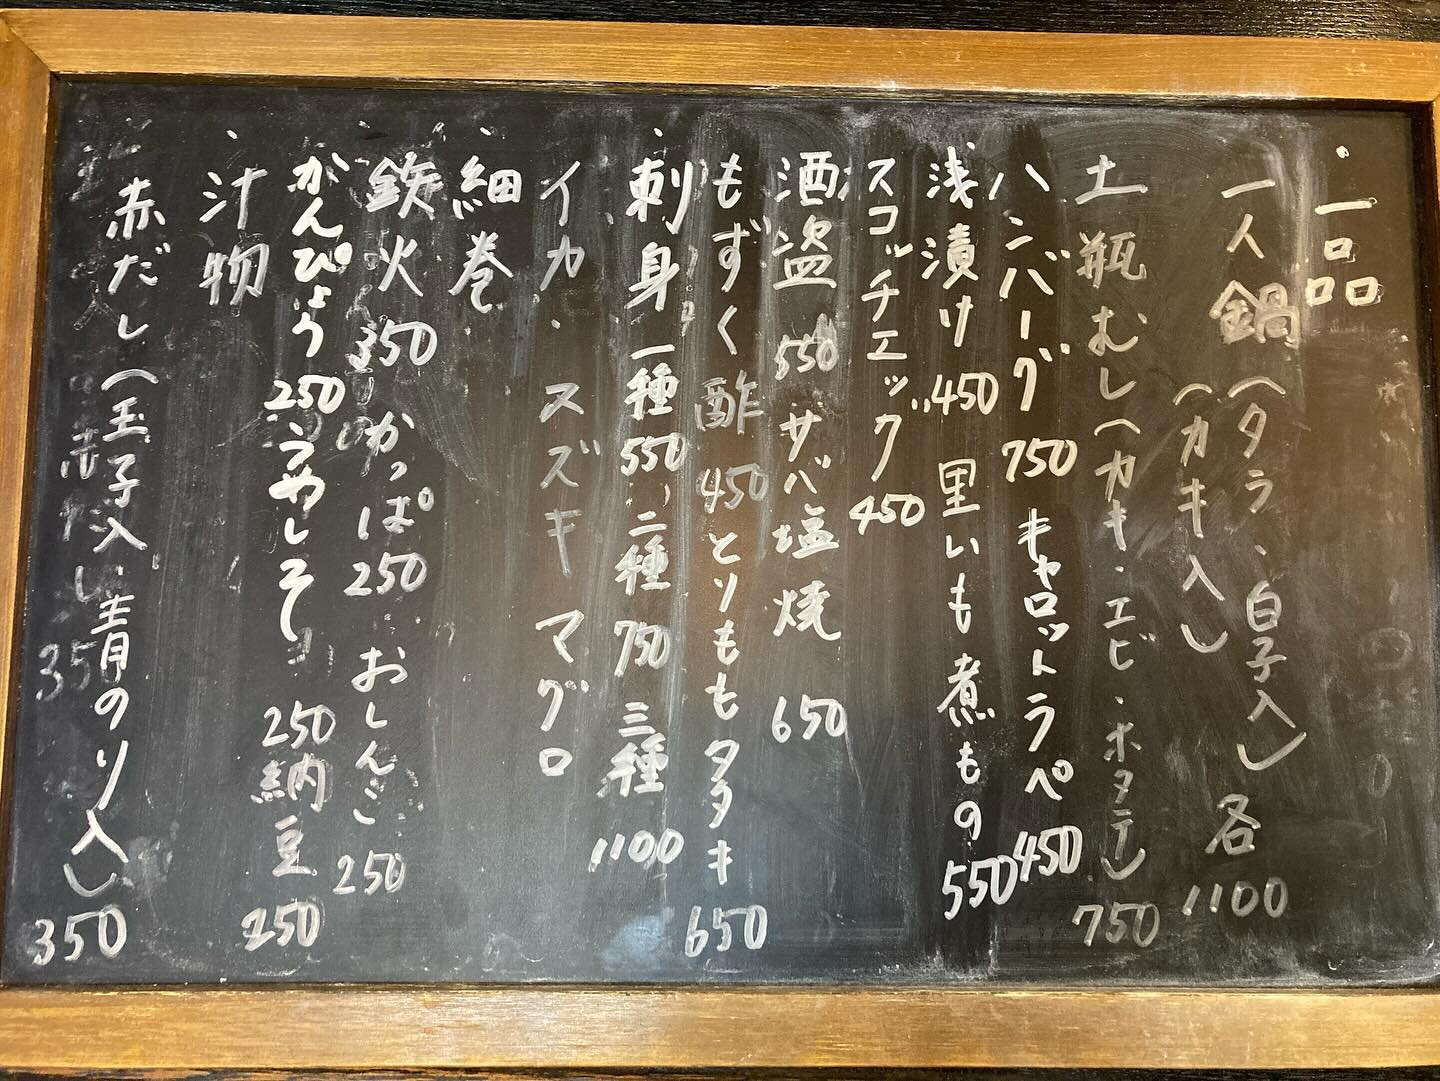 ・一品
一人鍋（タラ・白子入）各1100
（カキ入）
土瓶むし（カキ・エビ・ホタテ）750
ハンバーグ 750 キャロットラペ 450
浅漬け 450 里いも煮もの 550
スコッチエッグ 450
酒盗 550 サバ塩焼 650
もずく酢 450 とりももタタキ 650
・刺身 一種 550 二種 750 三種 1100
イカ・スズキ マグロ
・細巻
鉄火 350 かっぱ 250 おしんこ 250
かんぴょう 250 うめしそ 250 納豆 250
・汁物
赤だし（玉子入り・青のり入）350